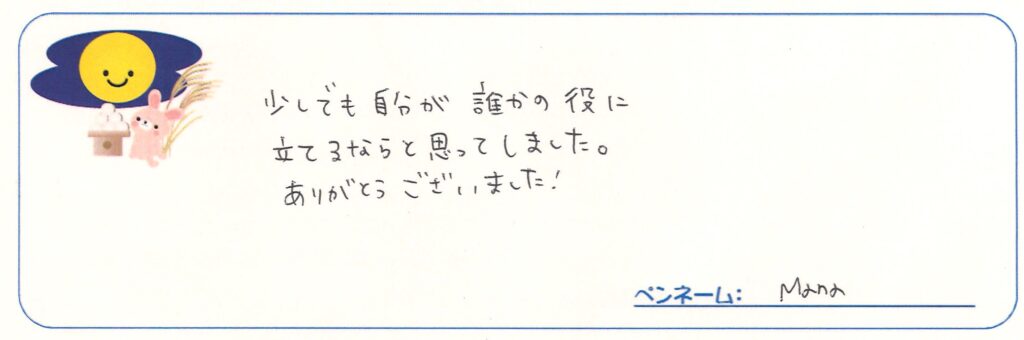 少しでも自分が誰かの役に
立てるならと思ってしました。
ありがとうございました!
ペンネーム: Mana